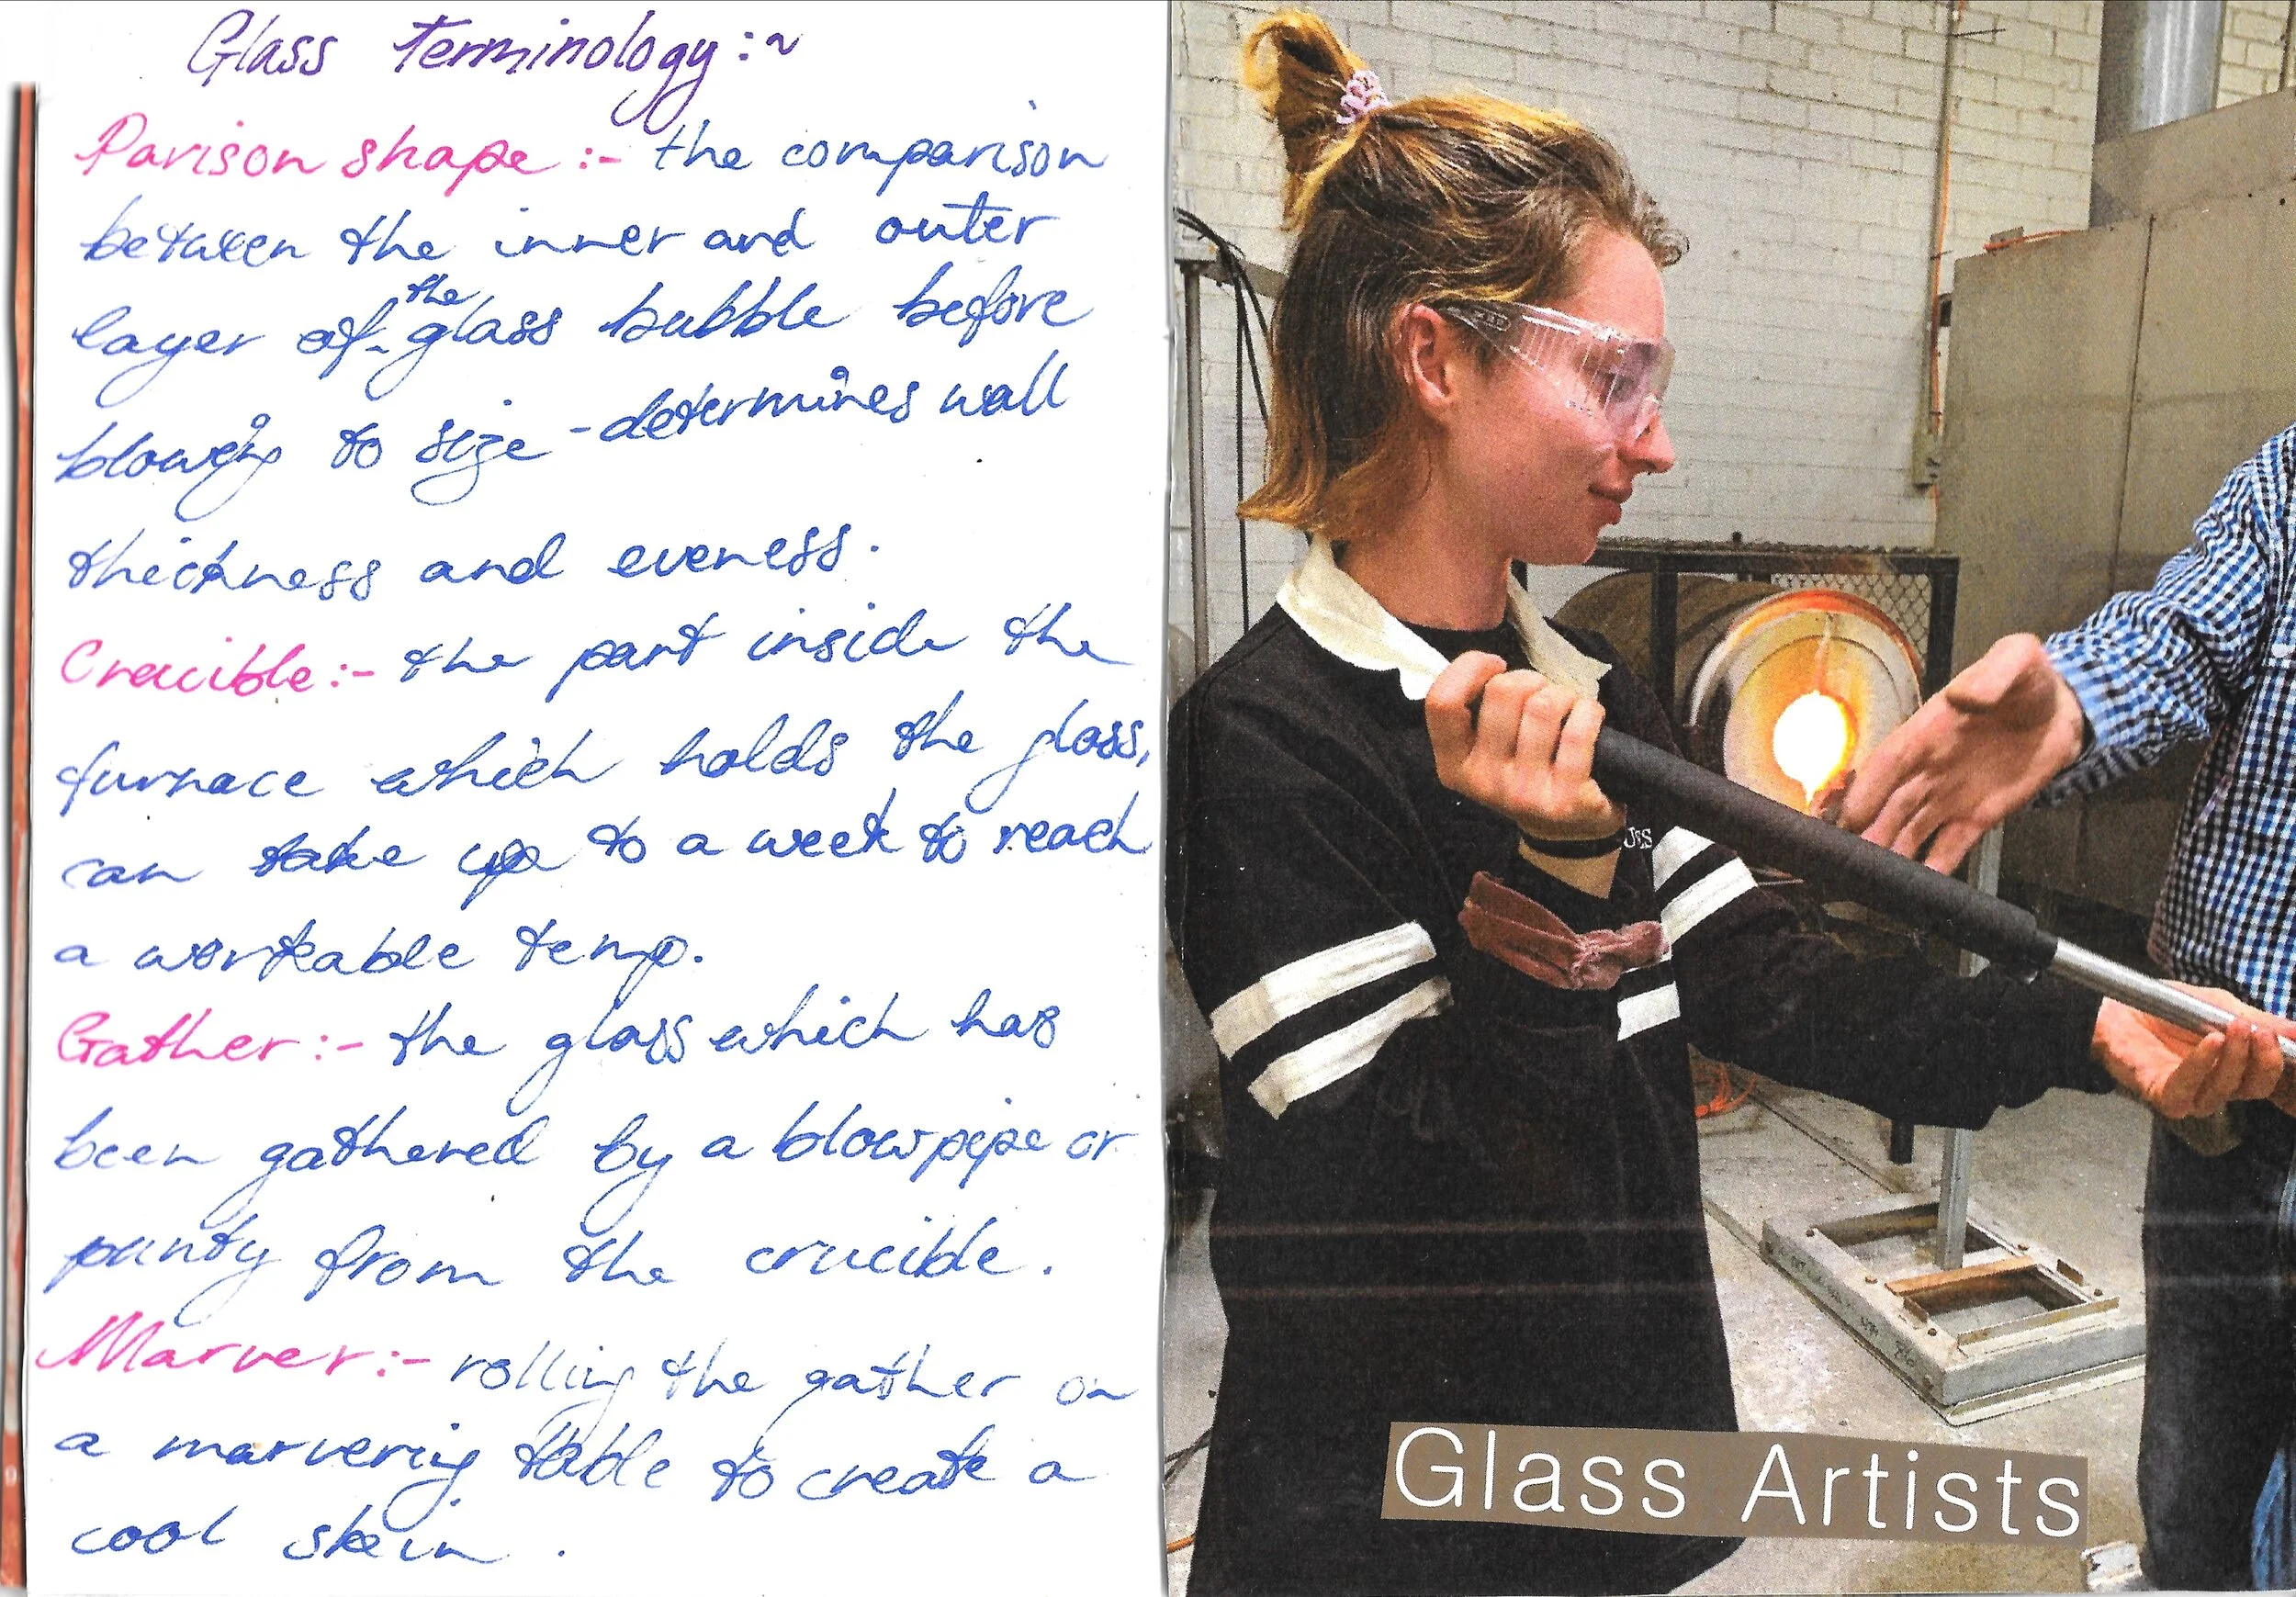 Glass terminology:~
Parison shape :- the comparison
between the inner and outer
layer of the glass bubble before
blowing to size - determines wall
thickness and eveness.
Crucible:- the part inside the
furnace which holds the glass,
can take up to a week to reach
a workable temp.
Gather:- the glass which has
been gathered by a blowpipe or
punty from the crucible.
Marver:- rolling the gather on
a marvering table to create a
cool skin.
JES
Glass Artists